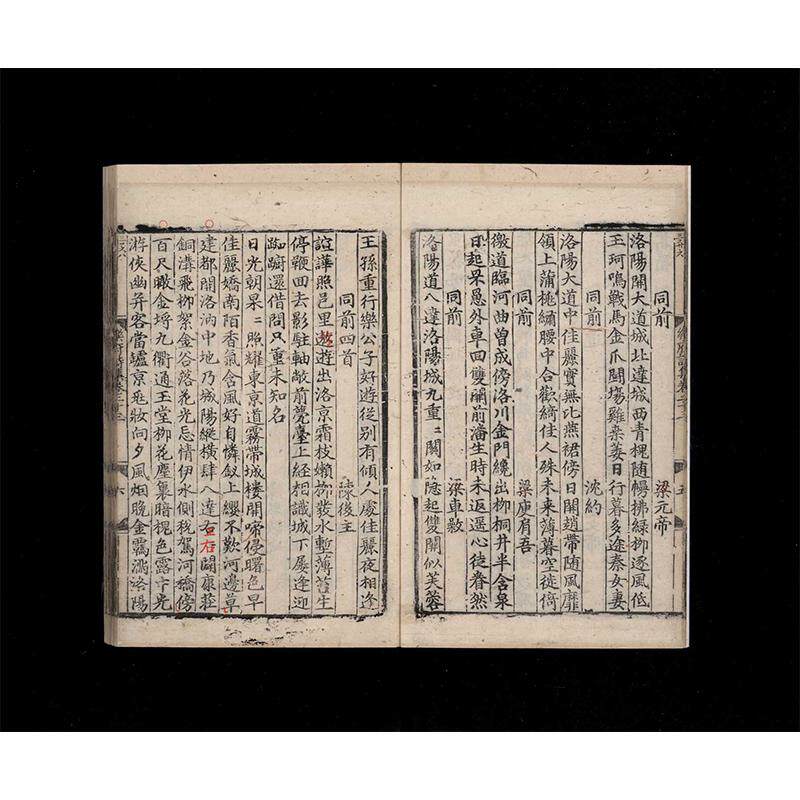 同前 梁元帝
洛陽開大道城北達城西青槐隨幔拂綠柳逐風低
玉珂鳴戰馬金爪鬪塲雞桒萎日行暮多逢秦女妻
同前 沈約
洛陽大道中佳麗實無比燕裙傍日開趙帶隨風靡
領上蒲桃繡腰中合歡綺佳人殊未来薄暮空徙倚
同前 梁庾肩吾
徼道臨河曲曽城傍洛川金門纔出柳桐井半含泉
日起罘罳外車回雙闕前潘生時未返遥心徒眷然
同前 梁車𣀈
洛陽道八達洛陽城九重〻關如隱起雙闕似芙蓉
王孫重行樂公子好遊從別有傾人處佳麗夜相逢
同前四首 陳後主
諠譁照邑里遨遊出洛京霜枝嫩柳發水塹薄苔生
停鞭回去影駐軸敞前甍臺上經相識城下屢逢迎
踟蹰還借問只重未知名
日光朝杲〻照耀東京道霧帶城樓開啼侵曙色早
佳麗嬌南陌香氣含風好自憐釵上纓不歎河邊草
建都開洛汭中地乃城陽縱横肆八達右右闢康莊
銅溝飛柳絮金谷落花光忘情伊水側稅駕河橋傍
百尺瞰金埒九衢通玉堂柳花塵裏暗槐色露中光
游俠幽并客當壚京兆妝向夕風烟晚金羈滿洛陽